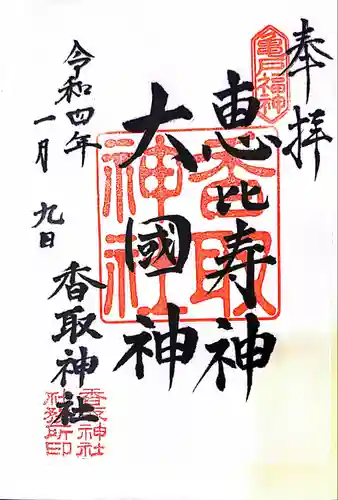 奉拝
亀戸福神
恵比寿神
大國神
香取神社
令和四年
一月九日
香取神社
香取神社社務所印